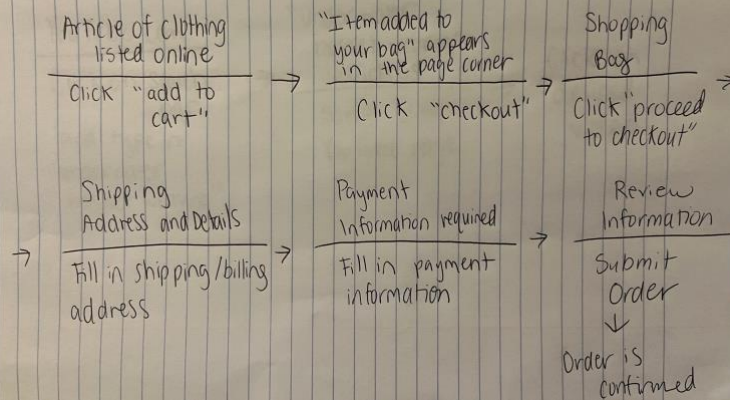 Article of clothing
listed online
Click "add to
cart"
"Item added to
your bag" appears
in the page corner
Click "checkout"
Shopping
Bag
Click "proceed
to checkout"
Shipping
Address and Details
Fill in shipping/billing
address
Payment
Information required
Fill in payment
information
Review
Information
Submit
Order
Order is
confirmed